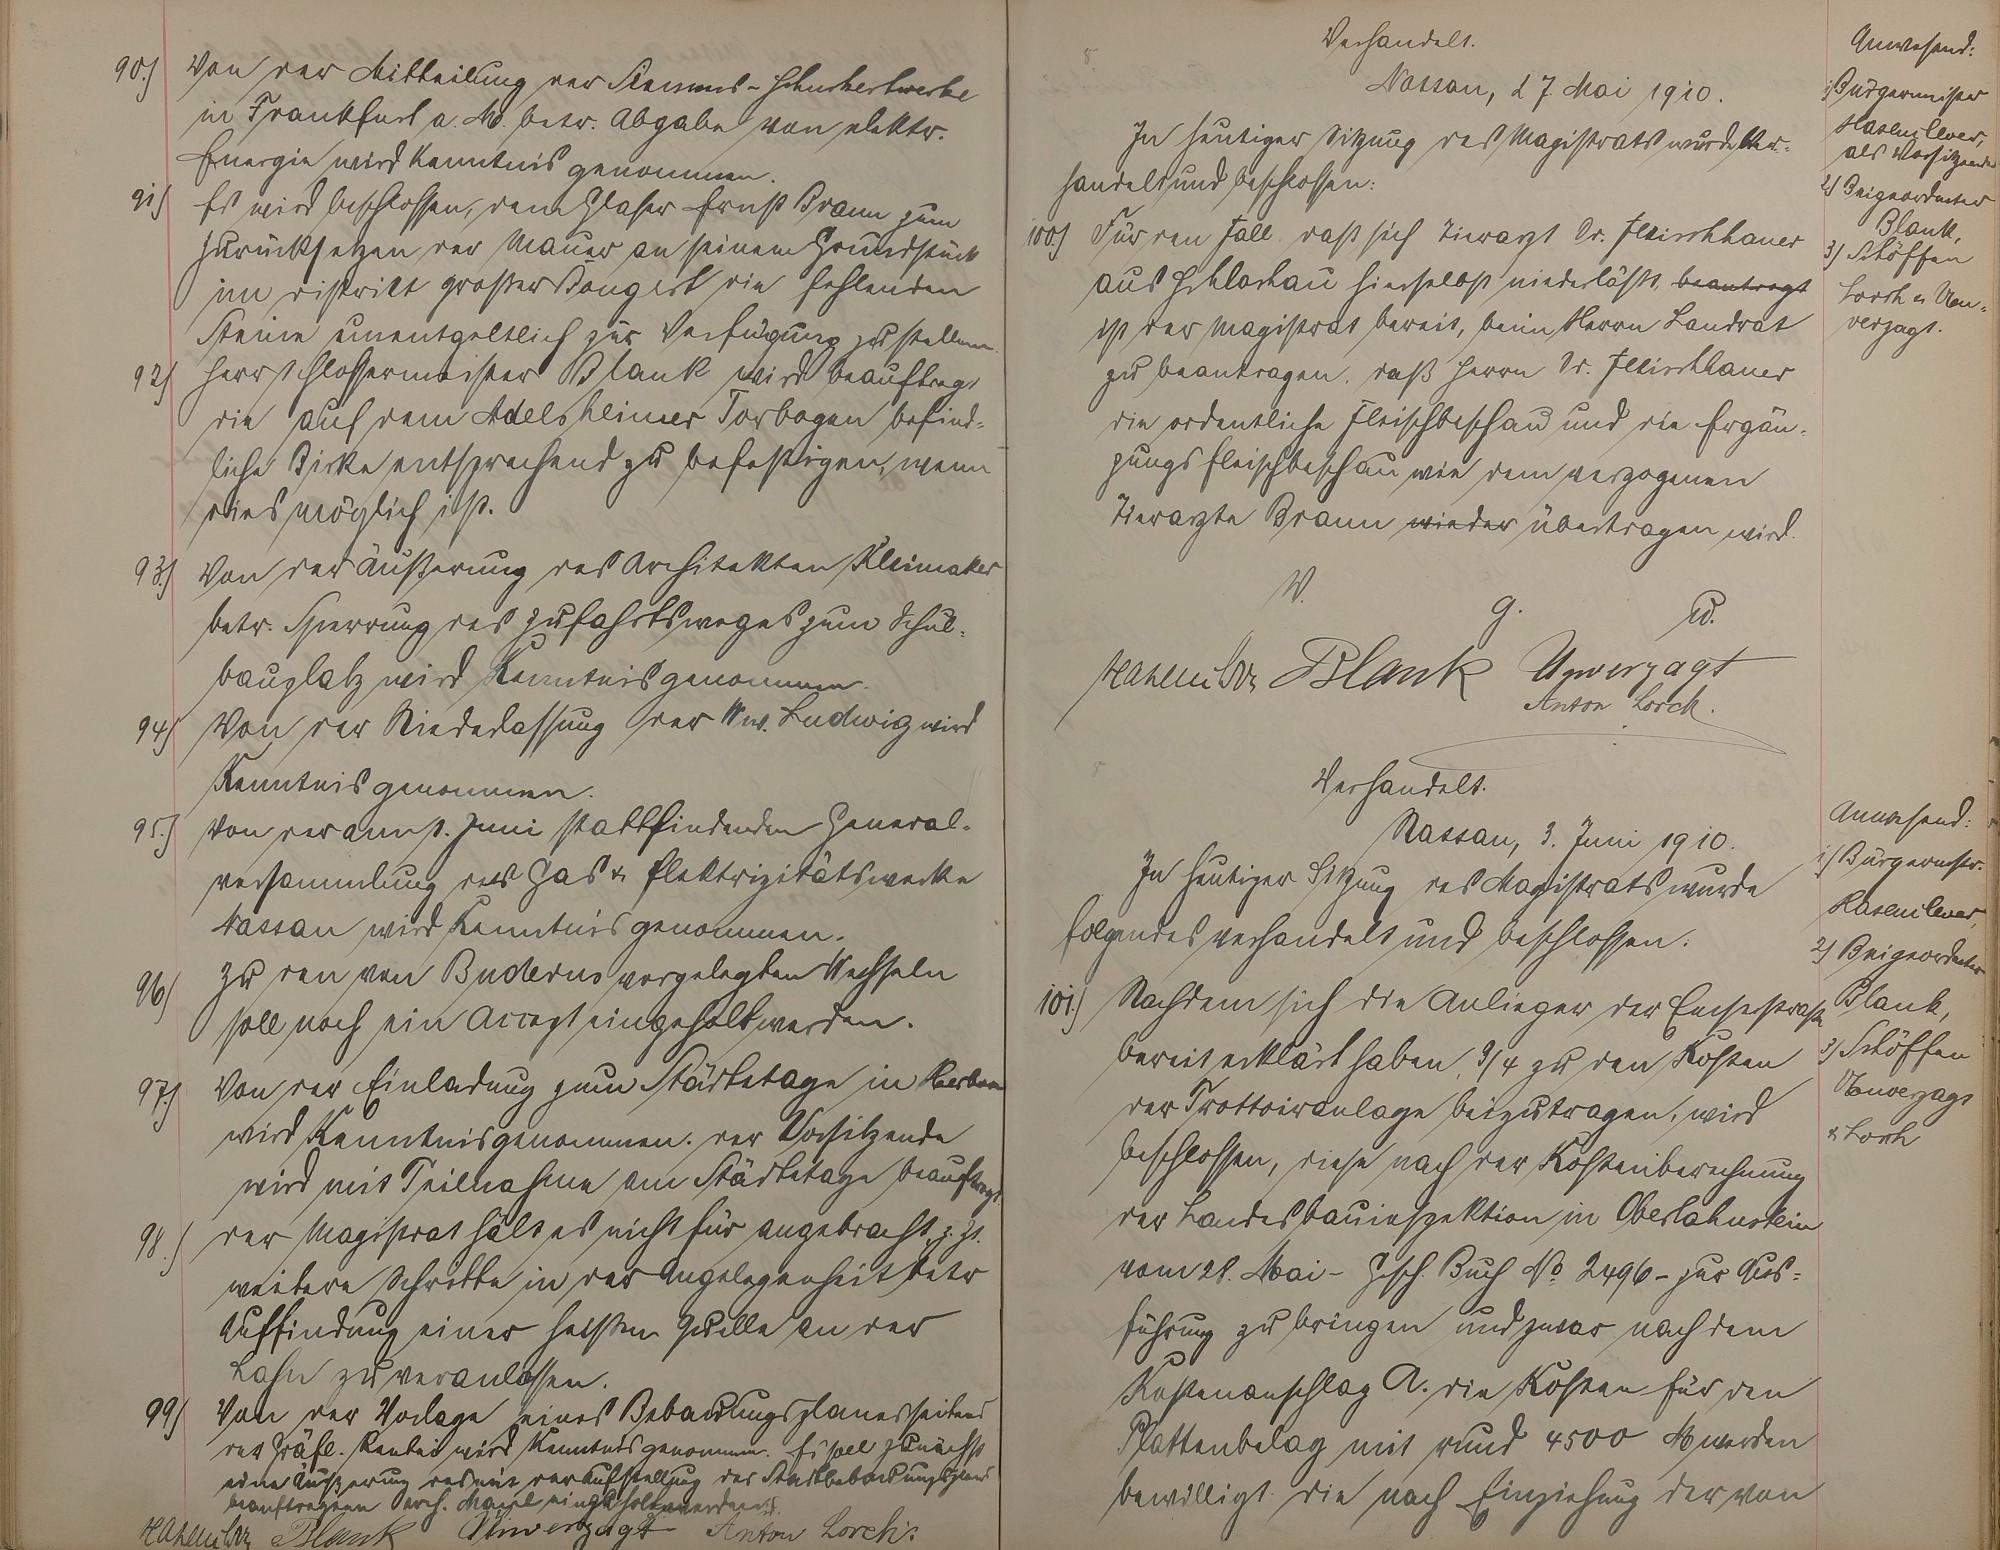 90.) Von der Mitteilung der Siemens-Schuckertwerke
in Frankfurt a. M. betr. Abgabe von elektr.
Energie wird Kenntnis genommen.
91.) Es wird beschlossen, dem Glaser Ernst Braun zum
Zurücksetzen der Mauer an seinem Grundstück
im Distrikt großer Bongert die fehlenden
Steine unentgeltlich zur Verfügung zu stellen.
92.) Herr Schlossermeister Blank wird beauftragt
die auf dem Adelsheimer Torbogen befind-
liche Birke entsprechend zu befestigen, wenn
dies möglich ist.
93.) Von der Äußerung des Architekten
betr. Sperrung des Zufahrtsweges zum Schul-
bauplatz wird Kenntnis genommen.
94.) Von der Niederlassung der Ww. Ludwig wird
Kenntnis genommen.
95.) Von der am Juni stattfindenden General-
versammlung des Gas & Elektrizitätswerke
Nassau wird Kenntnis genommen.
96.) Zu den von Buderus vorgelegten Wechseln
soll noch ein Accept eingeholt werden.
97.) Von der Einladung zum Städtetage in Herborn
wird Kenntnis genommen. Der Vorsitzende
wird mit Teilnahme am Städtetage beauftragt.
98.) Der Magistrat hält es nicht für angebracht, z. Zt.
weitere Schritte in der Angelegenheit betr
Auffindung einer heißen Quelle an der
Lahn zu veranlassen.
99.) Von der Vorlage eines Bebauungsplanes seitens
der Gräfl. Rentei wird Kenntnis genommen. Es soll zunächst
eine Äußerung des mit der Aufstellung des Stadtbebauungsplans
beauftragten Arch. eingeholt werden.
Hasenclever Blank Unverzagt Anton Lorch.
Verhandelt.
Nassau, 27. Mai 1910.
In heutiger Sitzung des Magistrats wurde ver-
handelt und beschlossen:
Anwesend:
1) Bürgermeister
Hasenclever,
als Vorsitzender
2) Beigeordneter
Blank,
3) Schöffen
Lorch u. Un-
verzagt.
100.) Für den Fall, daß sich Tierarzt Dr. Fleischhauer
aus Schlochau hierselbst niederläßt, beantragt
ist der Magistrat bereit, beim Herrn Landrat
zu beantragen, daß Herrn Dr. Fleischhauer
die ordentliche Fleischbeschau und die Ergän-
zungsfleischbeschau wie dem verzogenen
Tierarzte Braun wieder übertragen wird.
V. g. u.
Hasenclever Blank Unverzagt
Anton Lorch.
Verhandelt.
Nassau, 3. Juni 1910.
In heutiger Sitzung des Magistrats wurde
folgendes verhandelt und beschlossen:
Anwesend:
1) Bürgermstr.
Hasenclever,
2) Beigeordneter
Blank,
3) Schöffen
Unverzagt
& Lorch
101.) Nachdem sich die Anlieger der Emserstraße
bereit erklärt haben, 3/4 zu den Kosten
der Trottoiranlage beizutragen, wird
beschlossen, diese nach der Kostenberechnung
der Landesbauinspektion in Oberlahnstein
vom 28. Mai - Gesch. Buch No 2496 - zur Aus-
führung zu bringen und zwar nach dem
Kostenanschlag A. Die Kosten für den
Plattenbelag mit rund 4500 M werden
bewilligt die nach Einziehung der von